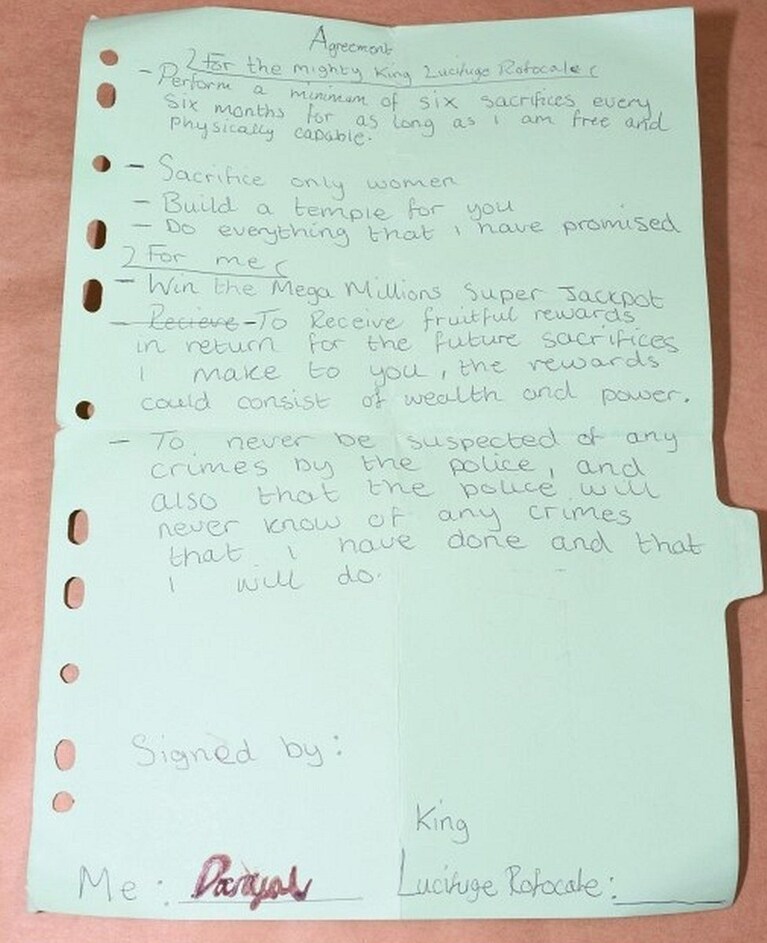 Agreement
For the mighty King Lucifuge Rofocale
- Perform a minimum of six sacrifices every
six months for as long as I am free and
physically capable.
- Sacrifice only women
- Build a temple for you
- Do everything that I have promised
For me
- Win the Mega Millions Super Jackpot
- Recieve - To Receive fruitful rewards
in return for the future sacrifices
I make to you, the rewards
could consist of wealth and power.
- To never be suspected of any
crimes by the police, and
also that the police will
never know of any crimes
that I have done and that
I will do.
Signed by:
King
Me: Danyal Lucifuge Rofocale: